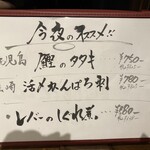 今夜のオススメ!!
鹿児島 鰹のタタキ ¥750-
崎 活〆かんぱち刺 ¥780-
レバーのしぐれ煮 ¥680-